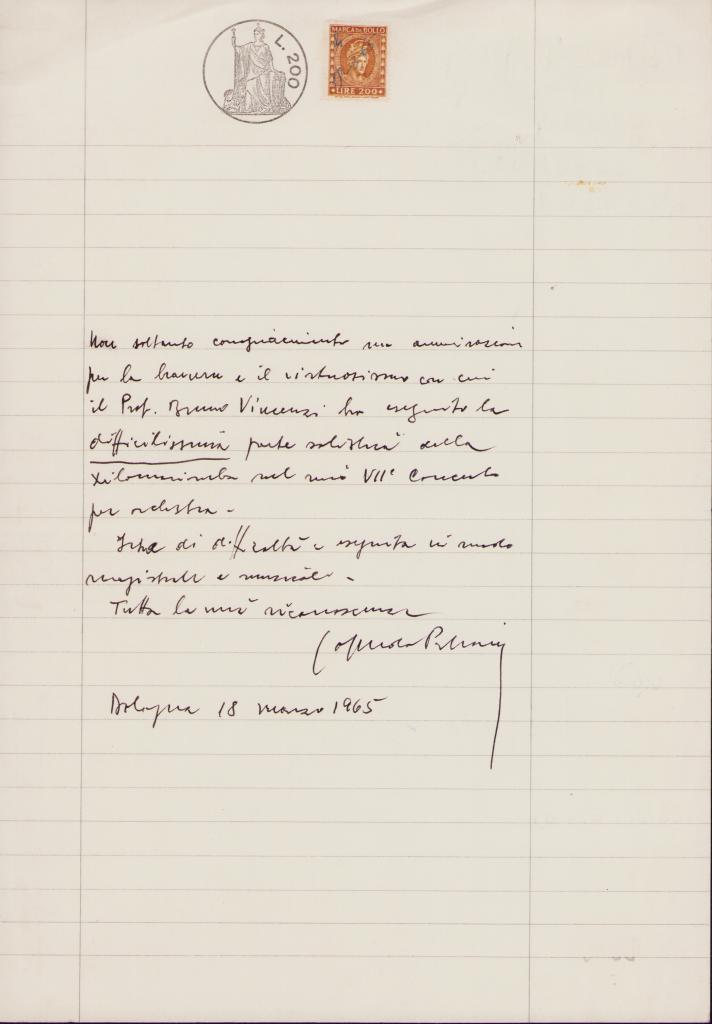 L. 200
MARCA DA BOLLO
LIRE 200
Non soltanto compiacimento ma ammirazione
per la bravura e il virtuosismo con cui
il Prof. Bruno Vincenzi ha eseguito la
difficilissima parte solistica della
Xilomarimba nel mio VII° Concerto
per orchestra -
di difficoltà e eseguita in modo
magistrale e musicale -
Tutta la mia riconoscenza
Goffredo Petrassi
Bologna 18 marzo 1965